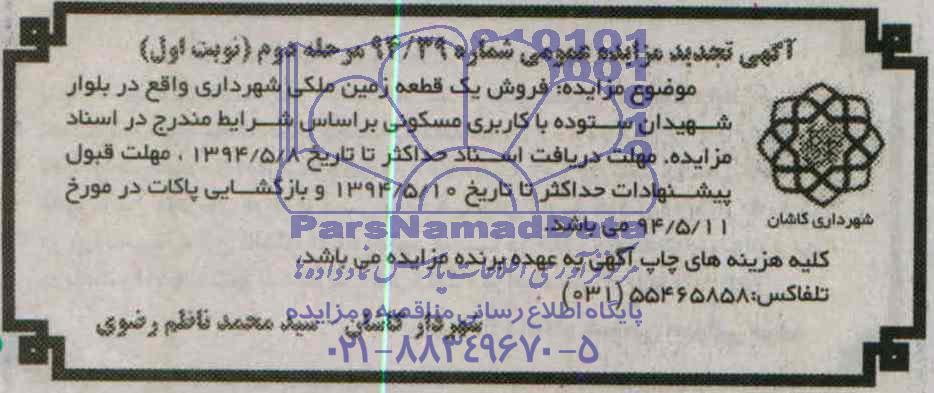 آگهی تجدید مزایده عمومی شماره ۹۴/۳۹ مرحله دوم (نوبت اول)
موضوع مزایده: فروش یک قطعه زمین ملکی شهرداری واقع در بلوار
شهیدان ستوده با کاربری مسکونی براساس شرایط مندرج در اسناد
مزایده. مهلت دریافت اسناد حداکثر تا تاریخ ۱۳۹۴/۵/۸ ، مهلت قبول
پیشنهادات حداکثر تا تاریخ ۱۳۹۴/۵/۱۰ و بازگشایی پاکات در مورخ
۹۴/۵/۱۱ می باشد.
کلیه هزینه های چاپ آگهی به عهده برنده مزایده می باشد.
تلفاکس:۵۵۴۶۵۸۵۸ (۰۳۱)
شهردار کاشان - سید محمد ناظم رضوی
شهرداری کاشان
ParsNamadData
مرکز فرآوری اطلاعات پارس نماد داده ها
پایگاه اطلاع رسانی مناقصه و مزایده
۰۲۱-۸۸۳۴۹۶۷۰-۵